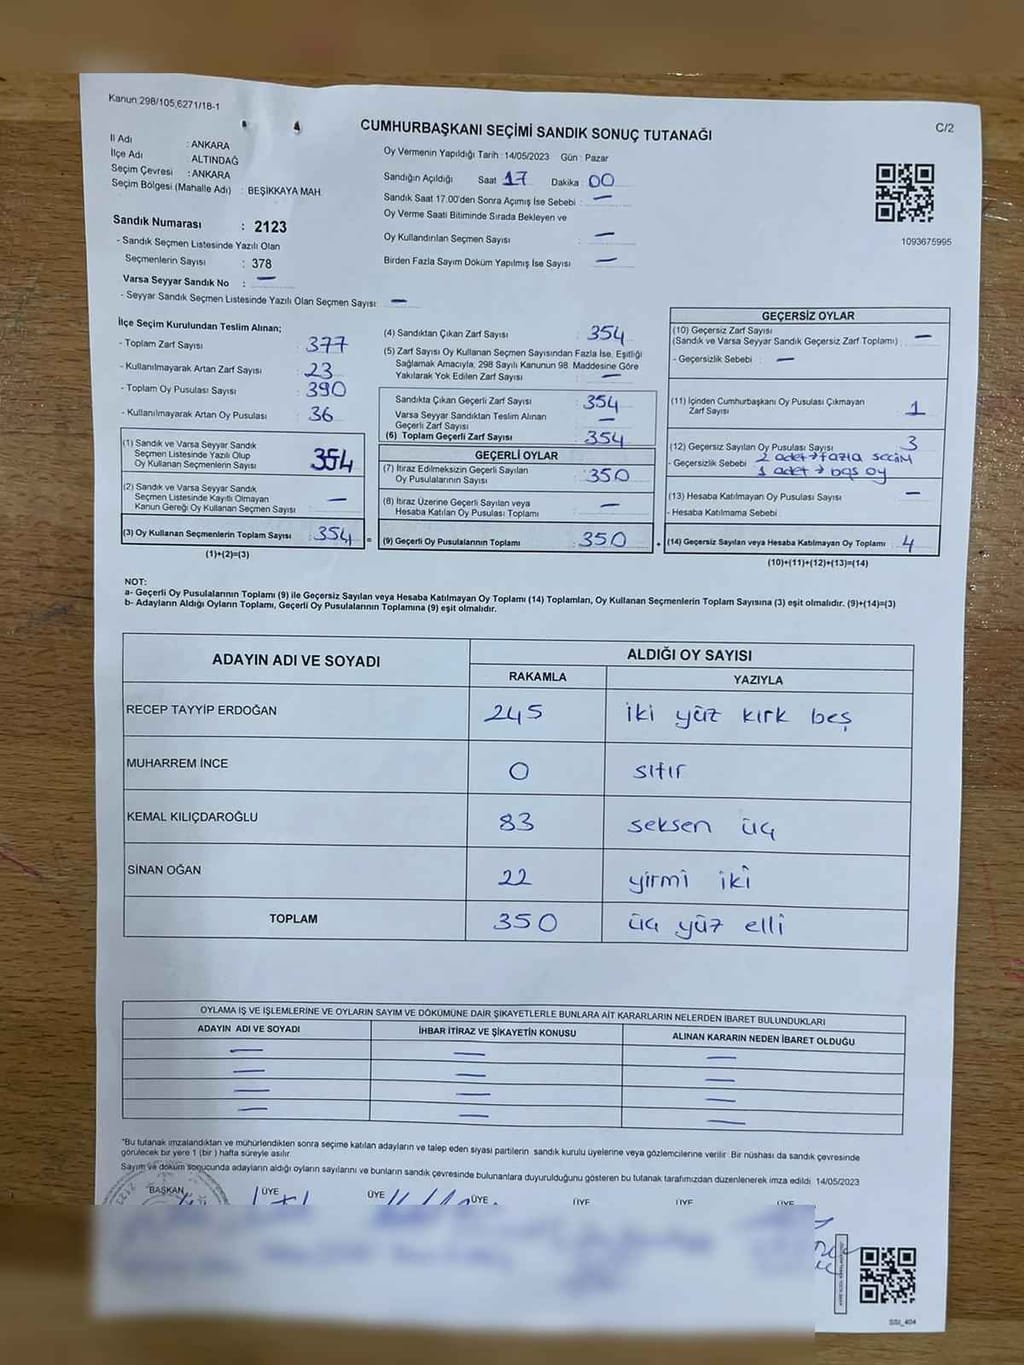 Kanun 298/105,6271/18-1
C/2
CUMHURBAŞKANI SEÇİMİ SANDIK SONUÇ TUTANAĞI
İl Adı : ANKARA
İlçe Adı : ALTINDAĞ
Seçim Çevresi : ANKARA
Seçim Bölgesi (Mahalle Adı) : BEŞİKKAYA MAH.
Sandık Numarası : 2123
- Sandık Seçmen Listesinde Yazılı Olan
Seçmenlerin Sayısı : 378
Varsa Seyyar Sandık No : —
- Seyyar Sandık Seçmen Listesinde Yazılı Olan Seçmen Sayısı: —
Oy Vermenin Yapıldığı Tarih : 14/05/2023 Gün : Pazar
Sandığın Açıldığı Saat 17 Dakika 00
Sandık Saat 17.00'den Sonra Açımış İse Sebebi : —
Oy Verme Saati Bitiminde Sırada Bekleyen ve
Oy Kullandırılan Seçmen Sayısı : —
Birden Fazla Sayım Döküm Yapılmış İse Sayısı : —
1093675995
İlçe Seçim Kurulundan Teslim Alınan;
- Toplam Zarf Sayısı : 377
- Kullanılmayarak Artan Zarf Sayısı : 23
- Toplam Oy Pusulası Sayısı : 390
- Kullanılmayarak Artan Oy Pusulası : 36
(1) Sandık ve Varsa Seyyar Sandık
Seçmen Listesinde Yazılı Olup
Oy Kullanan Seçmenlerin Sayısı : 354
(2) Sandık ve Varsa Seyyar Sandık
Seçmen Listesinde Kayıtlı Olmayan
Kanun Gereği Oy Kullanan Seçmen Sayısı : —
(3) Oy Kullanan Seçmenlerin Toplam Sayısı : 354 =
(1)+(2)=(3)
(4) Sandıktan Çıkan Zarf Sayısı : 354
(5) Zarf Sayısı Oy Kullanan Seçmen Sayısından Fazla İse, Eşitliği
Sağlamak Amacıyla, 298 Sayılı Kanunun 98. Maddesine Göre
Yakılarak Yok Edilen Zarf Sayısı : —
Sandıkta Çıkan Geçerli Zarf Sayısı : 354
Varsa Seyyar Sandıktan Teslim Alınan
Geçerli Zarf Sayısı : —
(6) Toplam Geçerli Zarf Sayısı : 354
GEÇERLİ OYLAR
(7) İtiraz Edilmeksizin Geçerli Sayılan
Oy Pusulalarının Sayısı : 350
(8) İtiraz Üzerine Geçerli Sayılan veya
Hesaba Katılan Oy Pusulası Toplamı : —
(9) Geçerli Oy Pusulalarının Toplamı : 350 +
GEÇERSİZ OYLAR
(10) Geçersiz Zarf Sayısı
(Sandık ve Varsa Seyyar Sandık Geçersiz Zarf Toplamı) : —
- Geçersizlik Sebebi : —
(11) İçinden Cumhurbaşkanı Oy Pusulası Çıkmayan
Zarf Sayısı : 1
(12) Geçersiz Sayılan Oy Pusulası Sayısı : 3
- Geçersizlik Sebebi : 2 adet → fazla secim
1 adet → boş oy
(13) Hesaba Katılmayan Oy Pusulası Sayısı : —
- Hesaba Katılmama Sebebi :
(14) Geçersiz Sayılan veya Hesaba Katılmayan Oy Toplamı : 4
(10)+(11)+(12)+(13)=(14)
NOT:
a- Geçerli Oy Pusulalarının Toplamı (9) ile Geçersiz Sayılan veya Hesaba Katılmayan Oy Toplamı (14) Toplamları, Oy Kullanan Seçmenlerin Toplam Sayısına (3) eşit olmalıdır. (9)+(14)=(3)
b- Adayların Aldığı Oyların Toplamı, Geçerli Oy Pusulalarının Toplamına (9) eşit olmalıdır.
ADAYIN ADI VE SOYADI ALDIĞI OY SAYISI
RAKAMLA YAZIYLA
RECEP TAYYİP ERDOĞAN 245 iki yüz kırk beş
MUHARREM İNCE 0 sıfır
KEMAL KILIÇDAROĞLU 83 seksen üç
SİNAN OĞAN 22 yirmi iki
TOPLAM 350 üç yüz elli
OYLAMA İŞ VE İŞLEMLERİNE VE OYLARIN SAYIM VE DÖKÜMÜNE DAİR ŞİKAYETLERLE BUNLARA AİT KARARLARIN NELERDEN İBARET BULUNDUKLARI
ADAYIN ADI VE SOYADI İHBAR İTİRAZ VE ŞİKAYETİN KONUSU ALINAN KARARIN NEDEN İBARET OLDUĞU
— — —
— — —
— — —
— — —
"Bu tutanak imzalandıktan ve mühürlendikten sonra seçime katılan adayların ve talep eden siyasi partilerin sandık kurulu üyelerine veya gözlemcilerine verilir. Bir nüshası da sandık çevresinde
görülecek bir yere 1 (bir) hafta süreyle asılır.
Sayım ve döküm sonucunda adayların aldığı oyların sayılarını ve bunların sandık çevresinde bulunanlara duyurulduğunu gösteren bu tutanak tarafımızdan düzenlenerek imza edildi. 14/05/2023
BAŞKAN ÜYE ÜYE ÜYE ÜYE ÜYE ÜYE
SSI_404